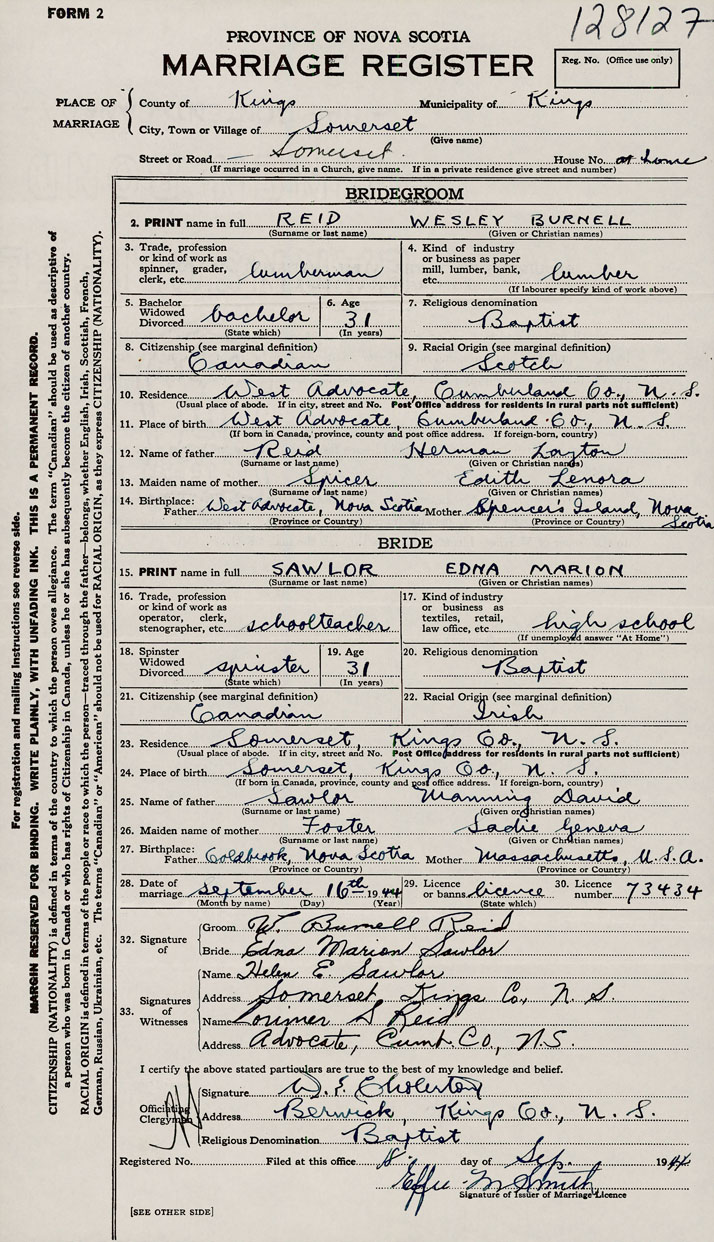 FORM 2
128127
PROVINCE OF NOVA SCOTIA
MARRIAGE REGISTER
Reg. No. (Office use only)
PLACE OF MARRIAGE
County of Kings Municipality of Kings
City, Town or Village of Somerset
(Give name)
Street or Road — Somerset. House No. at home
(If marriage occurred in a Church, give name. If in a private residence give street and number)
BRIDEGROOM
2. PRINT name in full REID WESLEY BURNELL
(Surname or last name) (Given or Christian names)
3. Trade, profession or kind of work as spinner, grader, clerk, etc. lumberman
4. Kind of industry or business as paper mill, lumber, bank, etc. lumber
(If labourer specify kind of work above)
5. Bachelor Widowed Divorced bachelor
(State which)
6. Age 31
(In years)
7. Religious denomination
Baptist
8. Citizenship (see marginal definition)
Canadian
9. Racial Origin (see marginal definition)
Scotch
10. Residence West Advocate, Cumberland Co., N. S.
(Usual place of abode. If in city, street and No. Post Office address for residents in rural parts not sufficient)
11. Place of birth West Advocate, Cumberland Co., N. S.
(If born in Canada, province, county and post office address. If foreign-born, country)
12. Name of father Reid Herman Layton
(Surname or last name) (Given or Christian names)
13. Maiden name of mother Spicer Edith Lenora
(Surname or last name) (Given or Christian names)
14. Birthplace: Father West Advocate, Nova Scotia Mother Spencer's Island, Nova Scotia
(Province or Country) (Province or Country)
BRIDE
15. PRINT name in full SAWLOR EDNA MARION
(Surname or last name) (Given or Christian names)
16. Trade, profession or kind of work as operator, clerk, stenographer, etc. schoolteacher
17. Kind of industry or business as textiles, retail, law office, etc high school
(If unemployed answer "At Home")
18. Spinster Widowed Divorced spinster
(State which)
19. Age 31
(In years)
20. Religious denomination
Baptist
21. Citizenship (see marginal definition)
Canadian
22. Racial Origin (see marginal definition)
Irish
23. Residence Somerset, Kings Co., N. S.
(Usual place of abode. If in city, street and No. Post Office address for residents in rural parts not sufficient)
24. Place of birth Somerset, Kings Co., N. S.
(If born in Canada, province, county and post office address. If foreign-born, country)
25. Name of father Sawlor Manning David
(Surname or last name) (Given or Christian names)
26. Maiden name of mother Foster Sadie Geneva
(Surname or last name) (Given or Christian names)
27. Birthplace: Father Coldbrook, Nova Scotia Mother Massachusetts, U.S.A.
(Province or Country) (Province or Country)
28. Date of marriage September 16th 1944
(Month by name) (Day) (Year)
29. Licence or banns licence
(State which)
30. Licence number 73434
32. Signature of
Groom W. Burnell Reid
Bride Edna Marion Sawlor
33. Signatures of Witnesses
Name Helen E. Sawlor
Address Somerset Kings Co., N. S.
Name Lorimer S Reid
Address Advocate, Cumb. Co., N.S.
I certify the above stated particulars are true to the best of my knowledge and belief.
Officiating Clergyman
Signature W. E. Cholerton
Address Berwick, Kings Co., N. S.
Religious Denomination Baptist
Registered No. Filed at this office 18 day of Sep. 1944
Effie M Smith
Signature of Issuer of Marriage Licence
[SEE OTHER SIDE]
For registration and mailing instructions see reverse side.
MARGIN RESERVED FOR BINDING. WRITE PLAINLY, WITH UNFADING INK. THIS IS A PERMANENT RECORD.
CITIZENSHIP (NATIONALITY) is defined in terms of the country to which the person owes allegiance. The term "Canadian" should be used as descriptive of
a person who was born in Canada or who has rights of Citizenship in Canada, unless he or she has subsequently become the citizen of another country.
RACIAL ORIGIN is defined in terms of the people or race to which the person—traced through the father—belongs, whether English, Irish, Scottish, French,
German, Russian, Ukrainian, etc. The terms "Canadian" or "American" should not be used for RACIAL ORIGIN, as they express CITIZENSHIP (NATIONALITY).